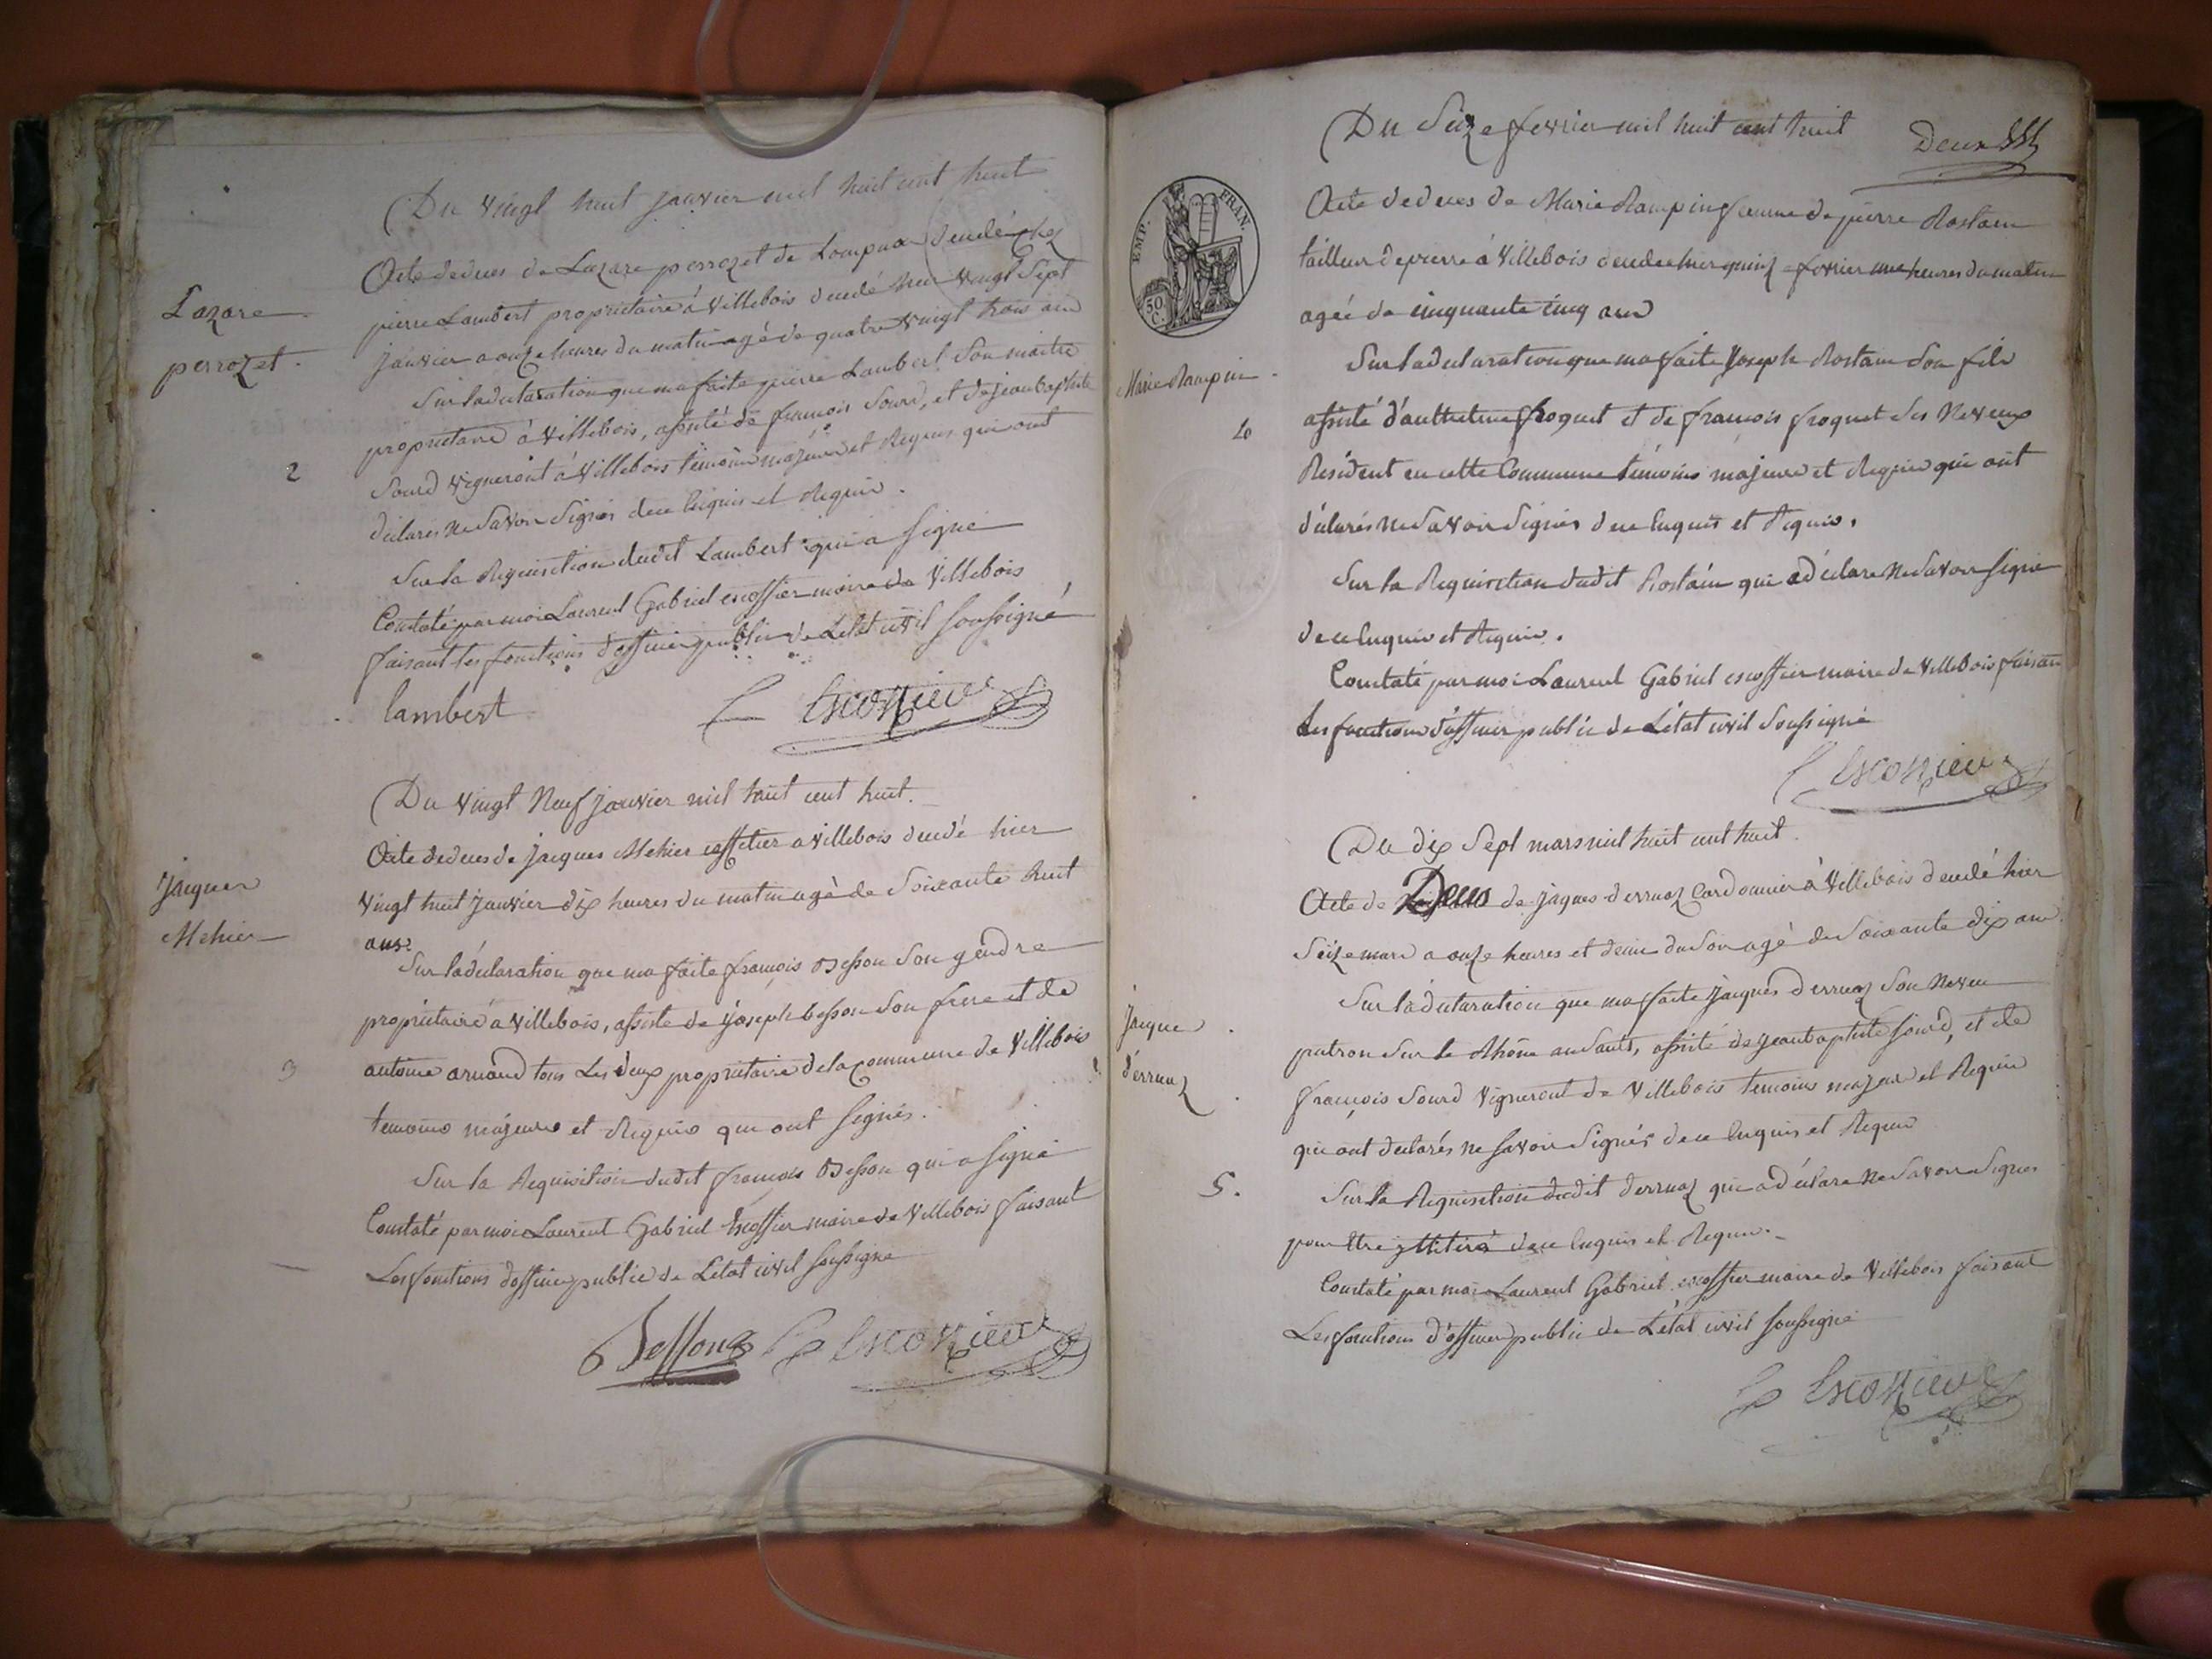 Du vingt huit janvier mil huit cent huit
Acte de deces de Lazare perrozet de Lompnas decedé chez
pierre Lambert propriétaire à Villebois decedé hier vingt Sept
janvier a onze heures du matin agé de quatre vingt trois ans
Lazare
perrozet.
Sur la declaration que ma faite pierre Lambert Son maitre
propriétaire à Villebois, assisté de françois Sourd, et de jean baptiste
2
Sourd Vigneront à Villebois témoins majeurs et Requis qui ont
déclarés ne Savoir Signer de ce Enquis et Requis.
Sur la Requisition dudit Lambert qui a Signé
Constaté par moi Laurent Gabriel escoffier maire de Villebois
faisant les fonctions d'officier public de L'état civil Soussigné
lambert
Escoffier
Du vingt Neuf janvier mil huit cent huit.
Jacques
Mehier
Acte de deces de jacques Mehier à Villebois decedé hier
vingt huit janvier dix heures du matin agé de Soixante huit
ans.
Sur la déclaration que ma faite françois Besson Son gendre
propriétaire à Villebois, assisté de joseph besson Son frere et de
3
antoine arnaud tous Les deux propriétaire de la Commune de Villebois
temoins majeurs et Requis qui ont Signés.
Sur la Requisition dudit françois Besson qui a Signé
Constaté par moi Laurent Gabriel Escoffier maire de Villebois faisant
Les fonctions d'officier public de L'état civil Soussigné
Besson Escoffier
Du Seize fevrier mil huit cent huit
Deux
EMP. FRAN.
50 C.
Acte de deces de Marie Rampin femme de pierre Rostain
tailleur de pierre à Villebois decedee hier quinze fevrier heures du matin
agée de cinquante cinq ans
Marie Rampin
Sur la declaration que ma faite Joseph Rostain Son fils
4
assisté d'anthelme froquet et de françois froquet Ses Neveux
Résident en cette Commune témoins majeurs et Requis qui ont
déclarés ne Savoir Signer de ce Enquis et Requis.
Sur la Requisition dudit Rostain qui a déclaré ne Savoir Signé
de ce Enquis et Requis.
Constaté par moi Laurent Gabriel escoffier maire de Villebois faisant
Les fonctions d'officier public de L'état civil Soussigné
Escoffier
Du dix Sept mars mil huit cent huit
Acte de Deces de jaques derruaz Cordonnier à Villebois decedé hier
Seize mars a onze heures et demie du Soir agé de Soixante dix ans
Jaque
derruaz
Sur la déclaration que ma faite jaques derruaz Son Neveu
patron Sur le Rhône au Sault, assisté de jean baptiste Sourd, et de
françois Sourd Vigneront de Villebois temoins majeur et Requis
qui ont declarés ne Savoir Signér de ce Enquis et Requis
5.
Sur la Requisition dudit derruaz qui a déclaré ne Savoir Signer
pour être de ce Enquis et Requis.
Constaté par moi Laurent Gabriel escoffier maire de Villebois faisant
Les fonctions d'officier public de L'état civil Soussigné
Escoffier